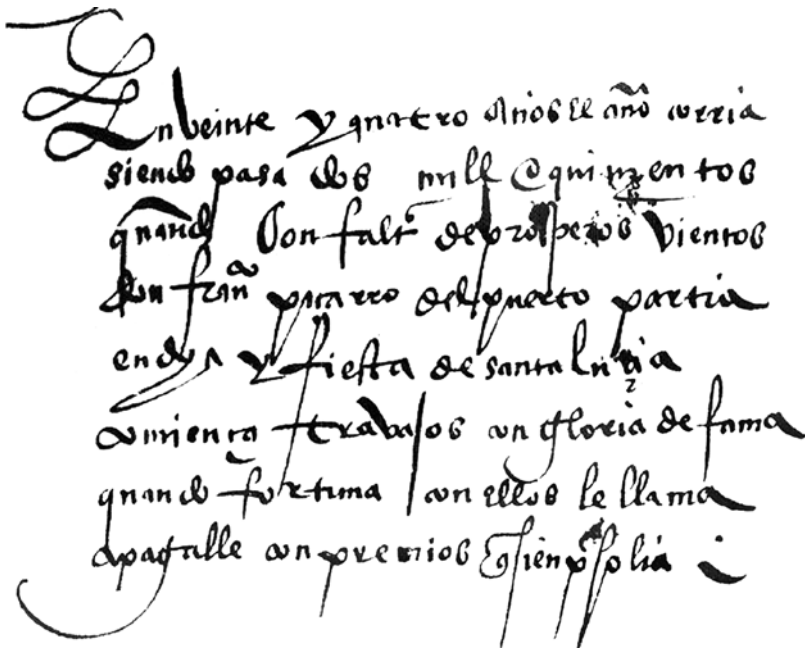 En beinte y quatro Años El año corria
siendo pasados mill e quinientos
quando Con falta de prosperos Vientos
don franco piçarro del puerto partia
en dia y fiesta de santa lucia
comiença trabajos con gloria de fama
quando fortuna con ellos le llama
a pagalle con premios q sienp solia